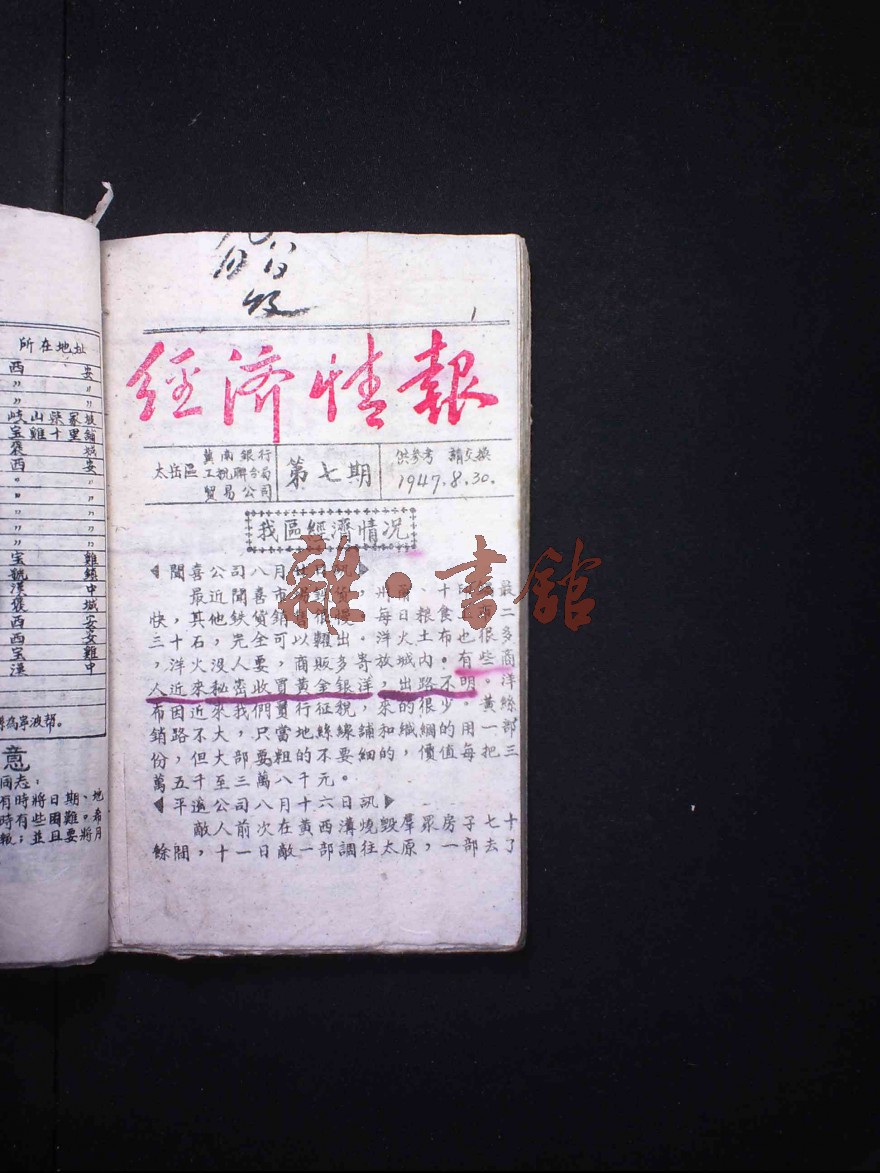 所在地址
西安
〃〃
〃〃
岐山梁家坡
宝雞十里鋪
褒城
西安
〃〃
〃〃
〃〃
〃〃
〃〃
宝雞
虢鎮
漢中
褒城
西安
西安
宝雞
漢中
為寧波幇。
意
同志：
有時將日期、地
時有些困難。希
；並且要將月
收
1
經濟情報
太岳區
冀南銀行
工稅聯合局
貿易公司
第七期
供參考 請交換
1947.8.30.
我區經濟情况
聞喜公司八月
最近聞喜市 最
快，其他鉄貨銷 每日粮食 二
三十石，完全可以糶出。洋火土布也很多
，洋火没人要，商販多寄放城内。有些商
人近來秘密收買黄金銀洋，出路不明。洋
布因近來我們實行征稅，來的很少。黄絲
銷路不大，只當地絲線鋪和織綢的用一部
份，但大部要粗的不要細的，價值每把三
萬五千至三萬八千元。
平遙公司八月十六日訊
敵人前次在黄西溝燒毀羣眾房子七十
餘間，十一日敵一部調往太原，一部去了
雜·書館